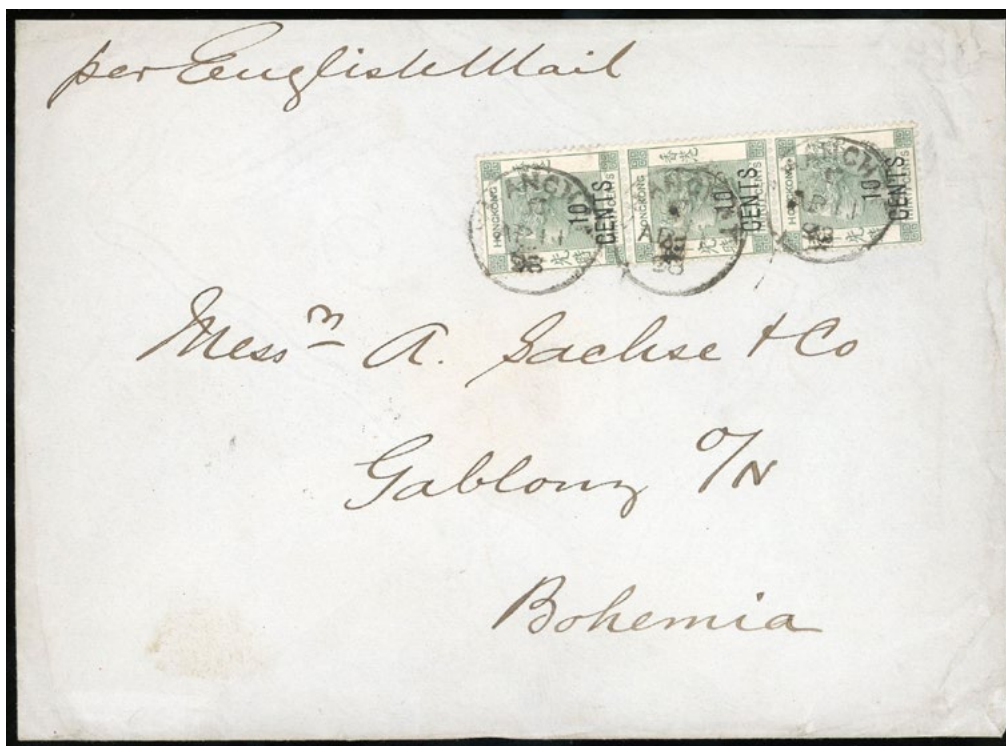 per English Mail
HONGKONG 香港 10 CENTS THIRTY CENTS
HONGKONG 香港 10 CENTS
HONGKONG 10 CENTS
Mess rs A. Sachse & Co
Gablonz O/N
Bohemia